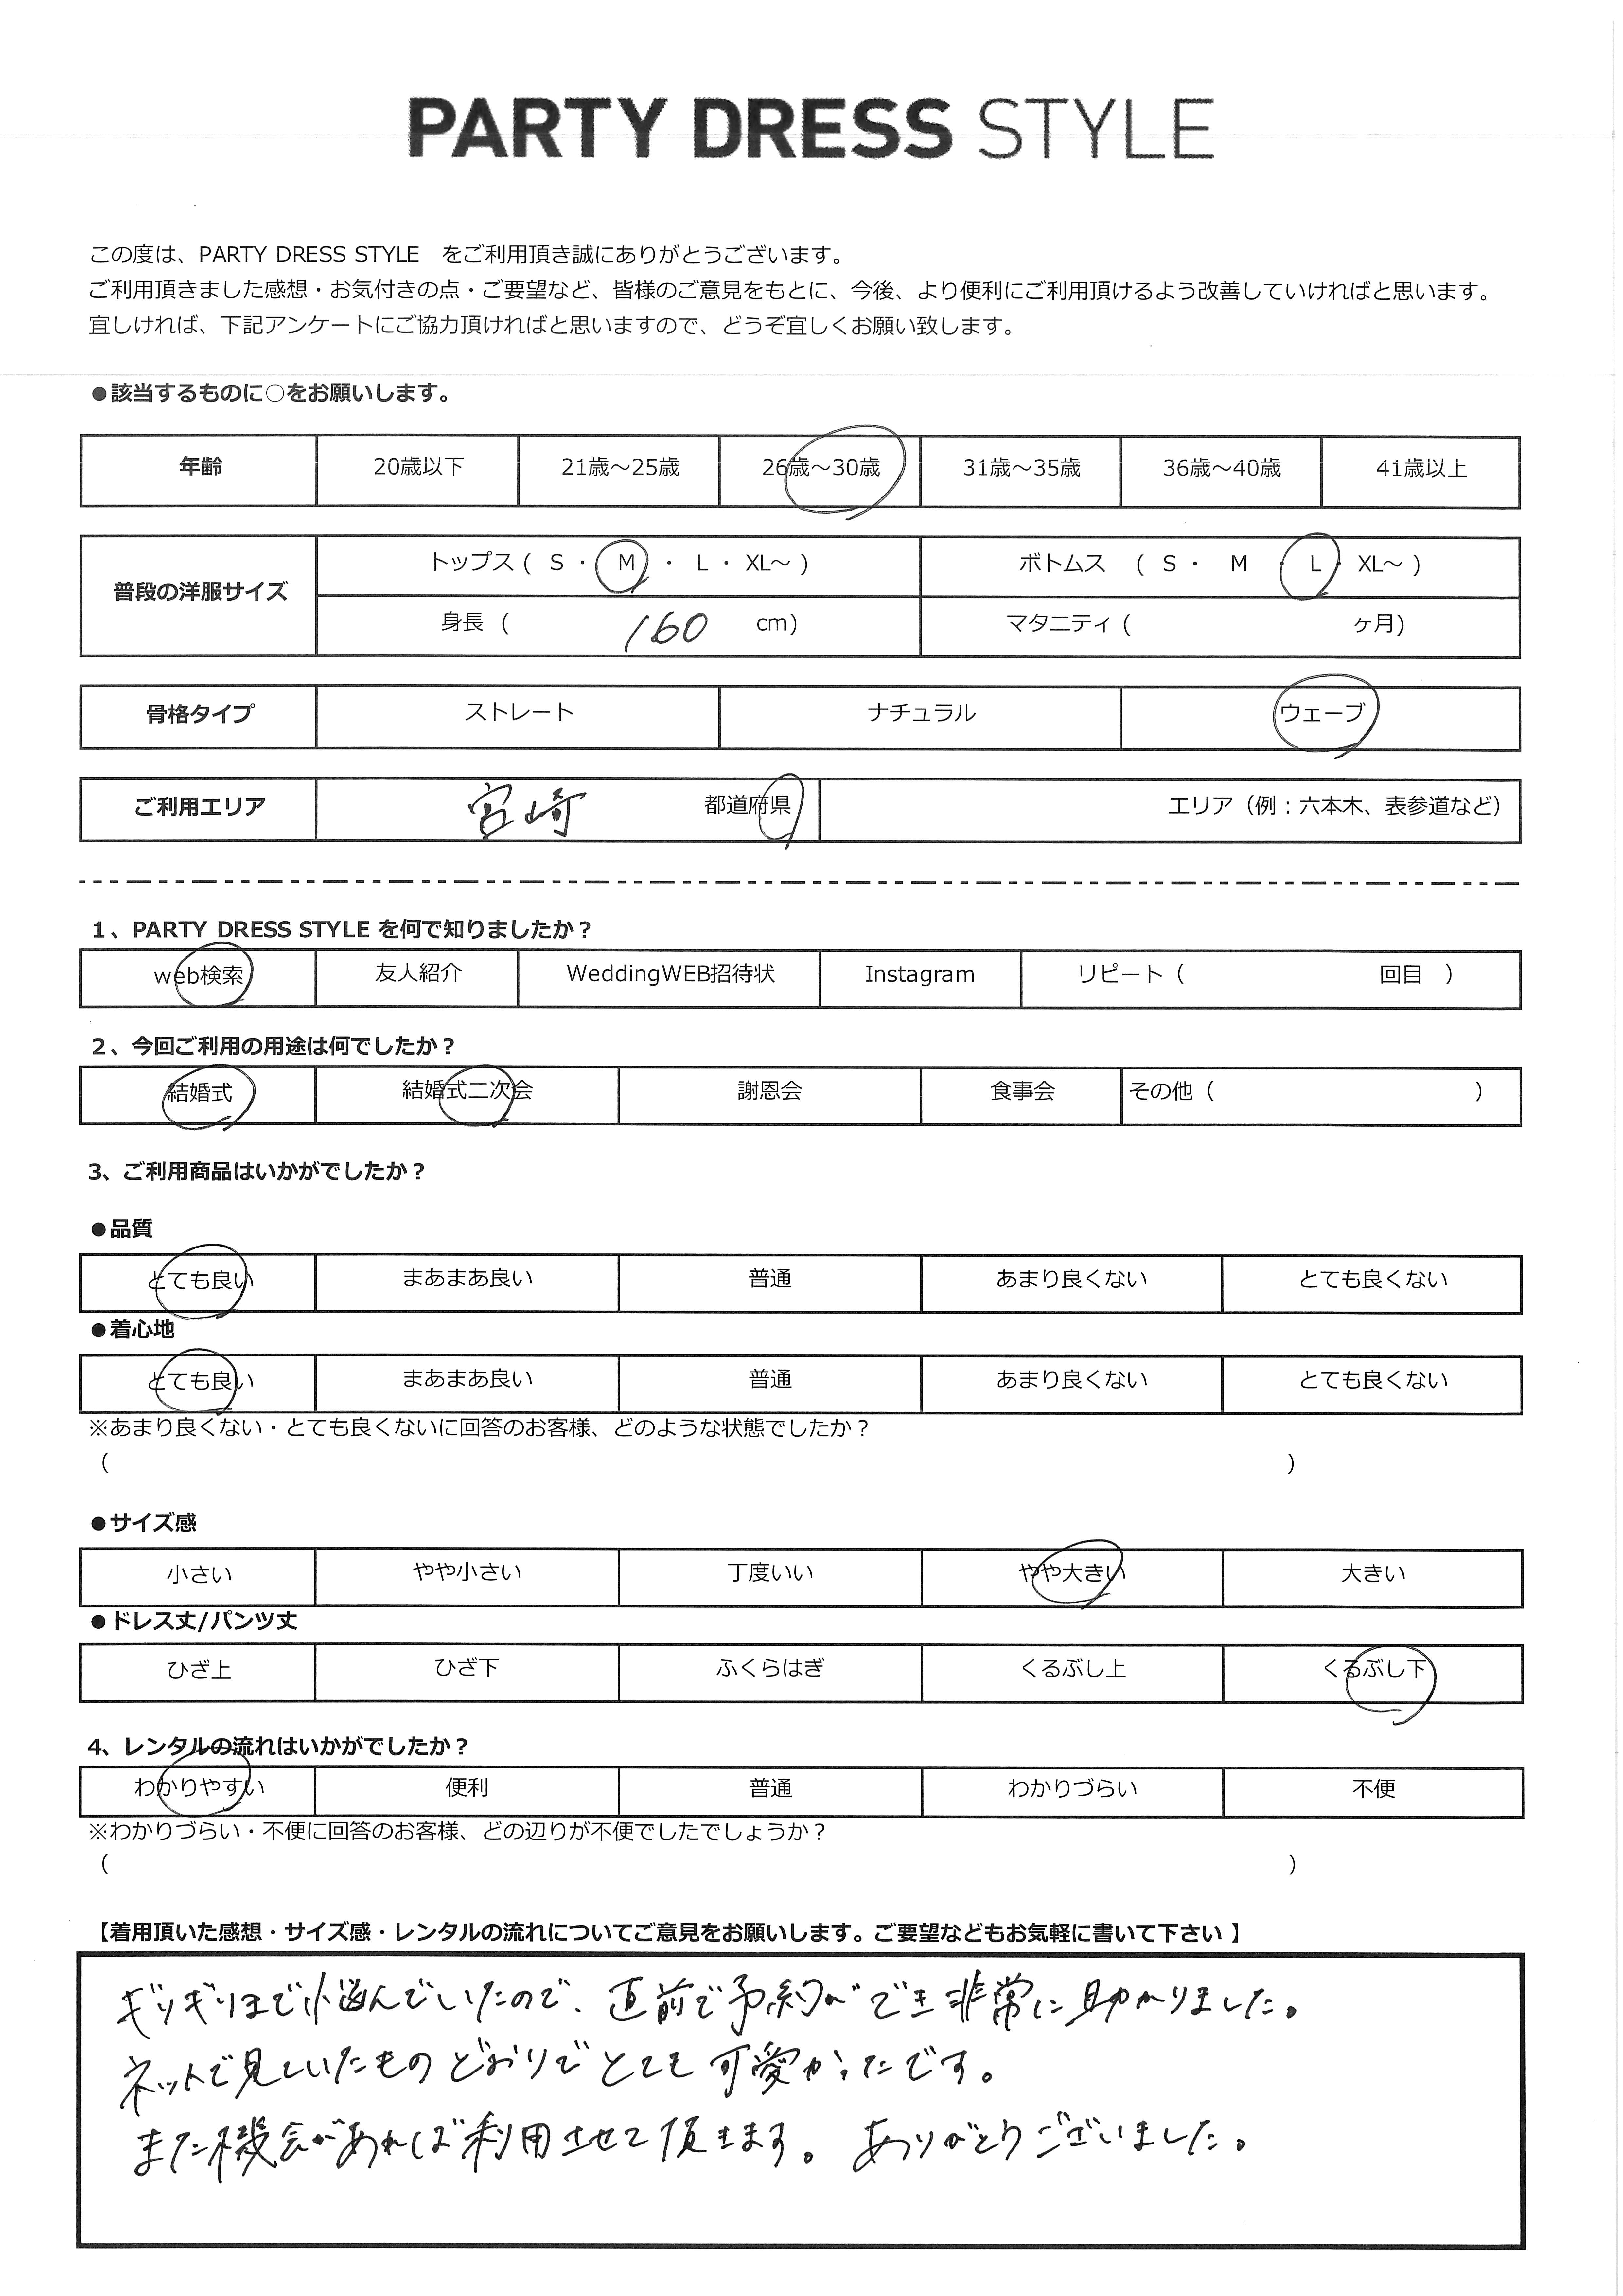 PARTY DRESS STYLE
この度は、PARTY DRESS STYLE をご利用頂き誠にありがとうございます。
ご利用頂きました感想・お気付きの点・ご要望など、皆様のご意見をもとに、今後、より便利にご利用頂けるよう改善していければと思います。
宜しければ、下記アンケートにご協力頂ければと思いますので、どうぞ宜しくお願い致します。
●該当するものに○をお願いします。
年齢 20歳以下 21歳～25歳 26歳～30歳 31歳～35歳 36歳～40歳 41歳以上
普段の洋服サイズ トップス ( S ・ M ・ L ・ XL～ ) ボトムス ( S ・ M ・ L ・ XL～ )
身長 ( 160 cm) マタニティ ( ヶ月)
骨格タイプ ストレート ナチュラル ウェーブ
ご利用エリア 宮崎 都道府県 エリア（例：六本木、表参道など）
1、PARTY DRESS STYLE を何で知りましたか？
web検索 友人紹介 WeddingWEB招待状 Instagram リピート（ 回目 ）
2、今回ご利用の用途は何でしたか？
結婚式 結婚式二次会 謝恩会 食事会 その他（ ）
3、ご利用商品はいかがでしたか？
●品質
とても良い まあまあ良い 普通 あまり良くない とても良くない
●着心地
とても良い まあまあ良い 普通 あまり良くない とても良くない
※あまり良くない・とても良くないに回答のお客様、どのような状態でしたか？
（ ）
●サイズ感
小さい やや小さい 丁度いい やや大きい 大きい
●ドレス丈/パンツ丈
ひざ上 ひざ下 ふくらはぎ くるぶし上 くるぶし下
4、レンタルの流れはいかがでしたか？
わかりやすい 便利 普通 わかりづらい 不便
※わかりづらい・不便に回答のお客様、どの辺りが不便でしたでしょうか？
（ ）
【着用頂いた感想・サイズ感・レンタルの流れについてご意見をお願いします。ご要望などもお気軽に書いて下さい 】
ギリギリまで悩んでいたので、直前で予約ができ非常に助かりました。
ネットで見ていたものどおりでとても可愛かったです。
また機会があれば利用させて頂きます。ありがとうございました。